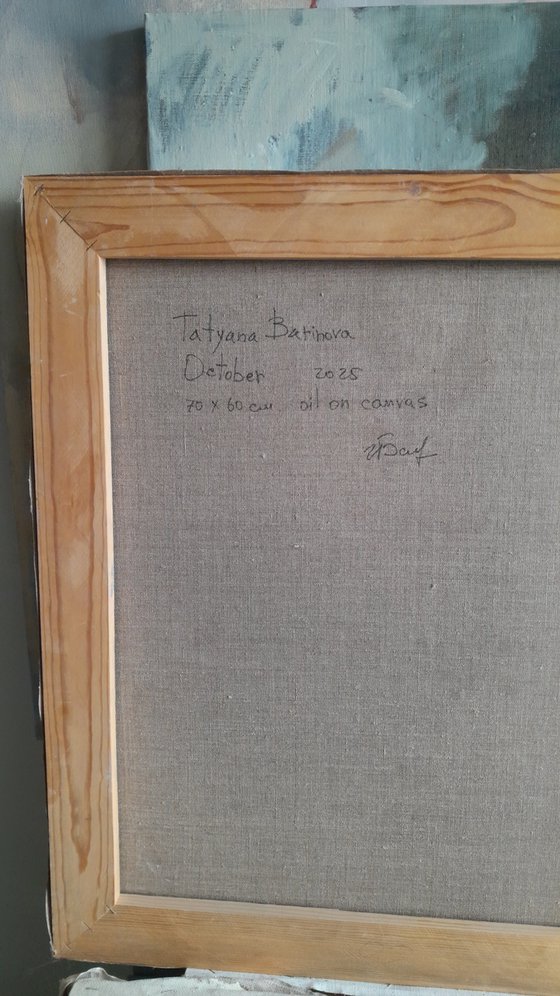 Tatyana Barinova
October 2025
70 x 60 cm oil on canvas